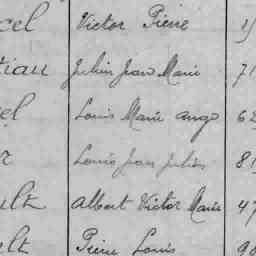 cel Victor Pierre
tiau Julien Jean Marie 7
el Louis Marie ange 62
r Louis Jean Julien 81
ult Albert Victor Marie 47
ult Pierre Louis